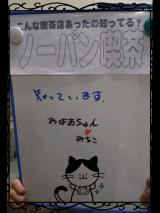 こんな喫茶店あったの知ってる?
ノーパン喫茶
知っています
おばあちゃん
みちこ